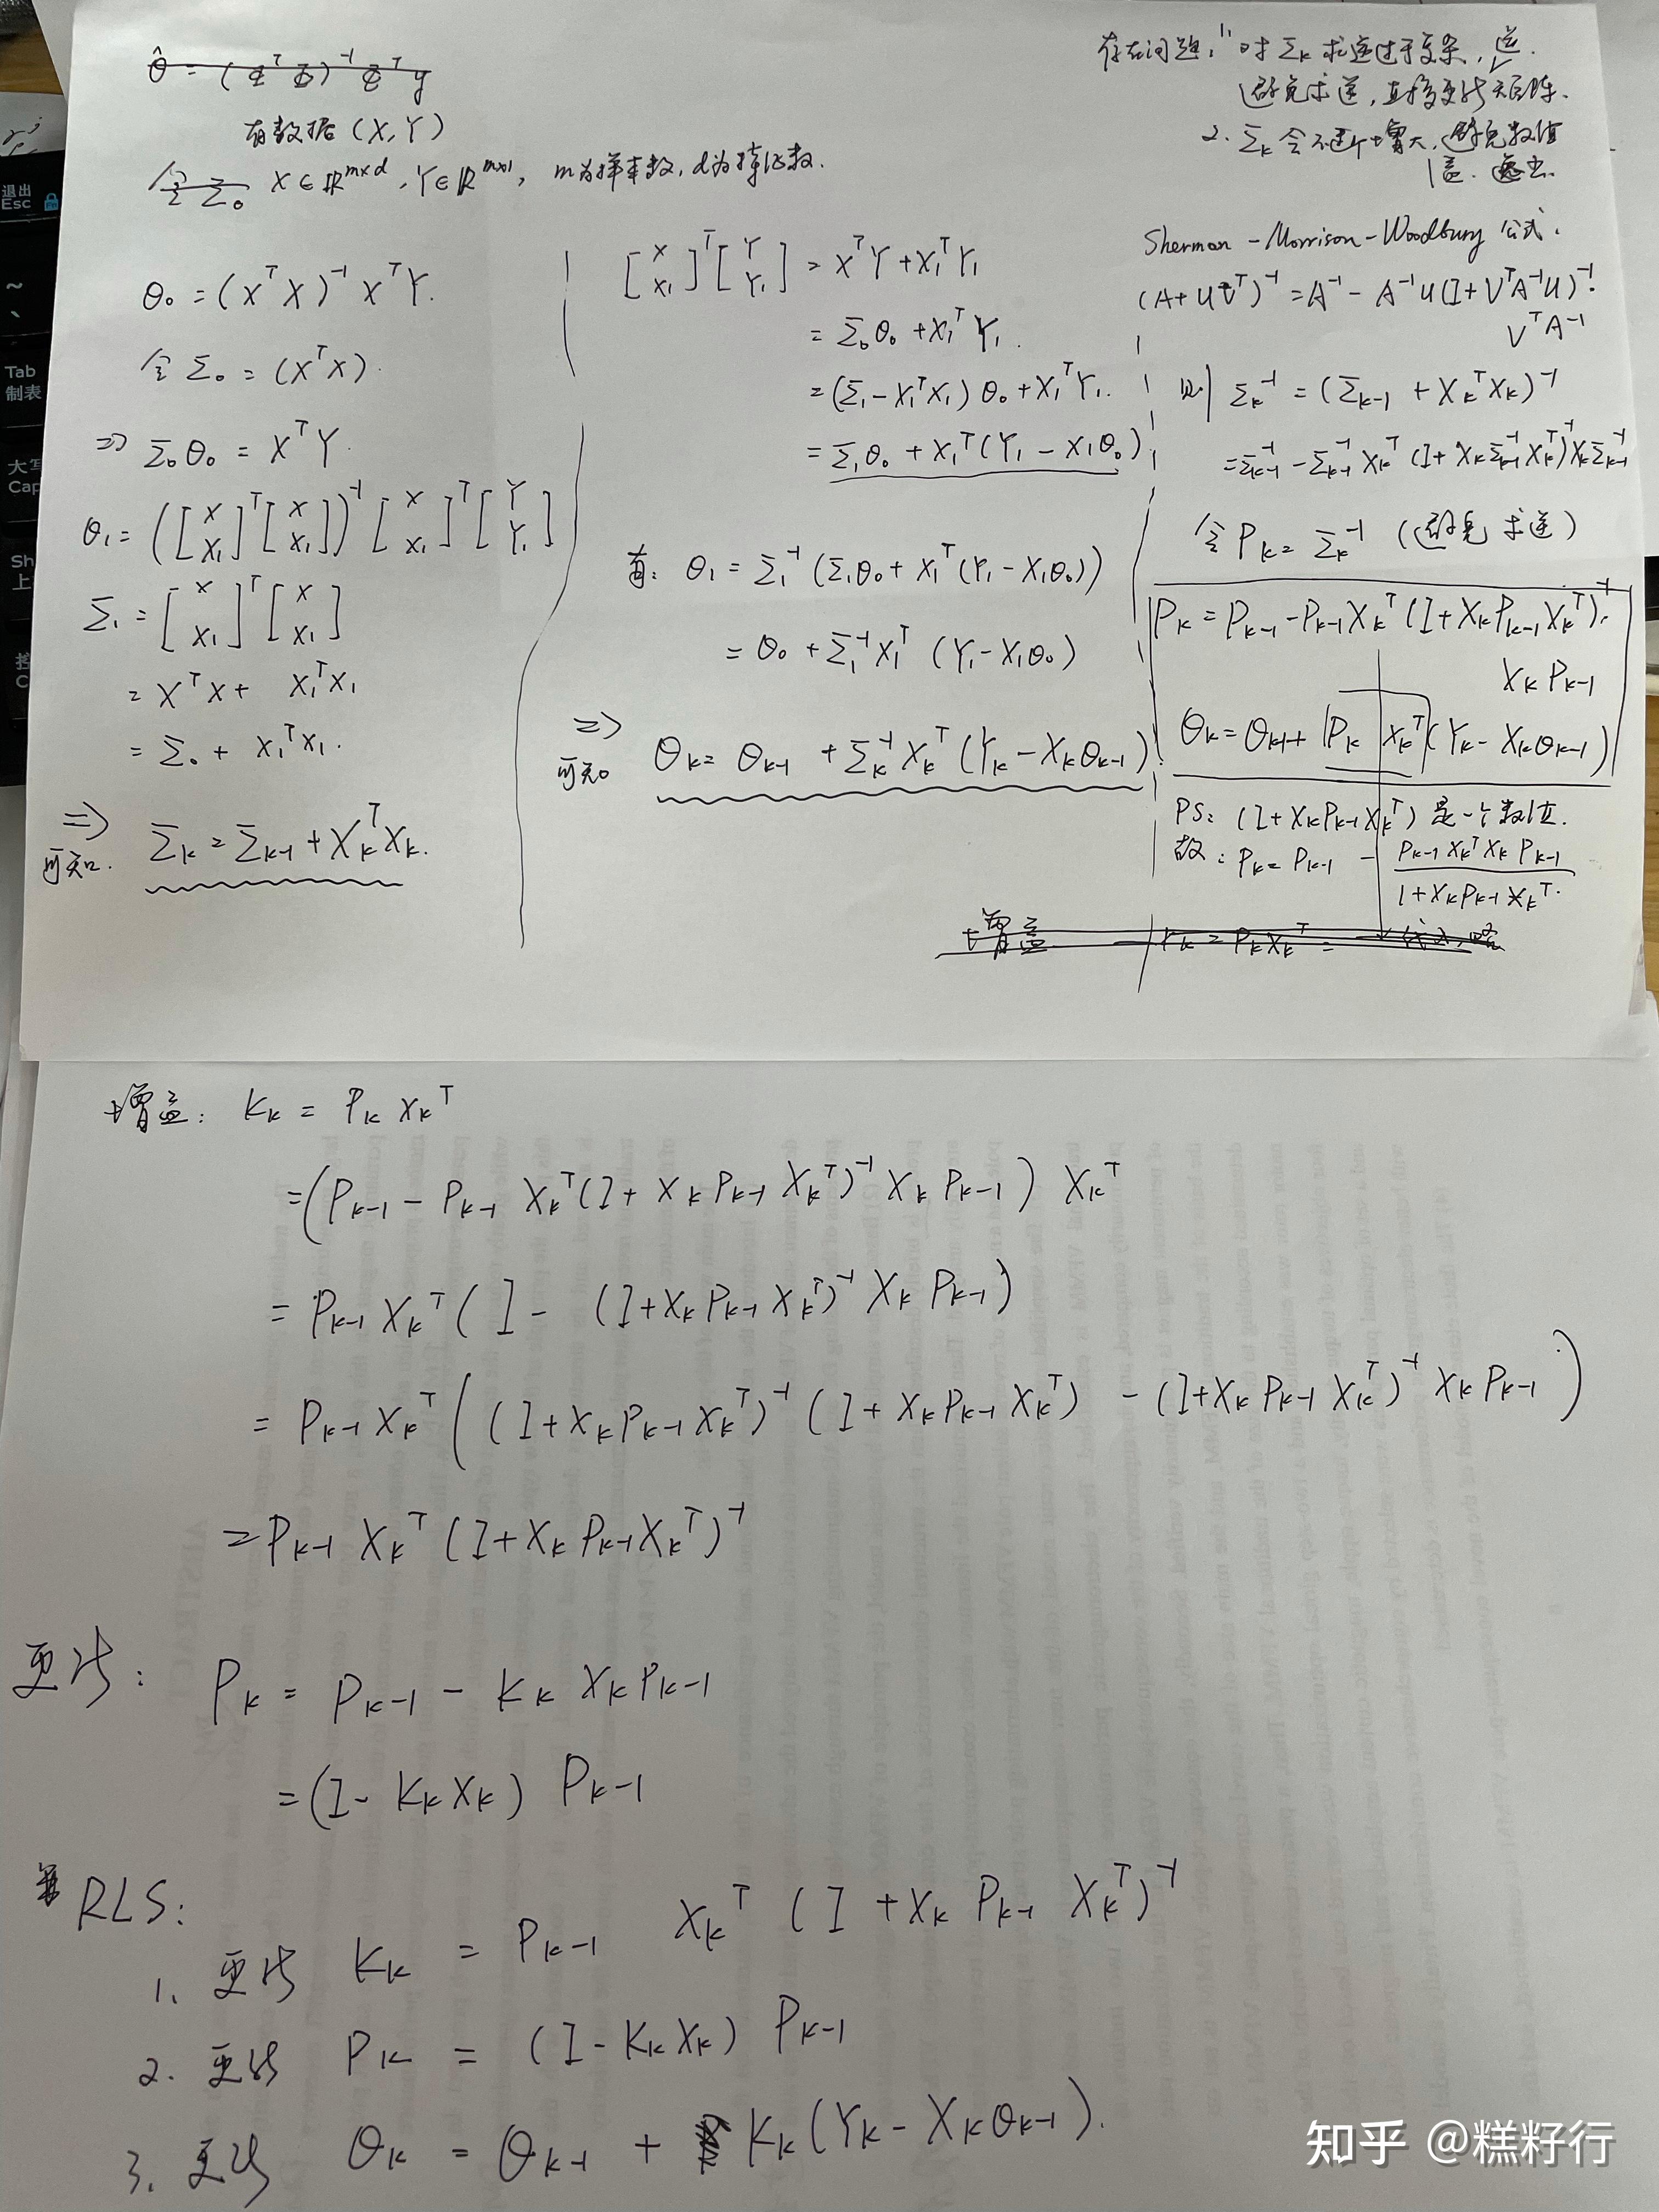 θ̂ = (Φᵀ Φ)⁻¹ Φᵀ y
有数据 (X, Y)
令 Σ₀ X ∈ ℝ^{m×d}, Y ∈ ℝ^{m×1}, m为样本数, d为特征数.
θ₀ = (XᵀX)⁻¹ XᵀY.
令 Σ₀ = (XᵀX).
⇒ Σ₀θ₀ = XᵀY.
θ₁ = ([X X₁]ᵀ [X X₁])⁻¹ [X X₁]ᵀ [Y Y₁]
Σ₁ = [X X₁]ᵀ [X X₁]
= XᵀX + X₁ᵀX₁
= Σ₀ + X₁ᵀX₁.
⇒ 可知. Σₖ = Σₖ₋₁ + XₖᵀXₖ.
[X X₁]ᵀ [Y Y₁] = XᵀY + X₁ᵀY₁
= Σ₀θ₀ + X₁ᵀY₁.
= (Σ₁ - X₁ᵀX₁) θ₀ + X₁ᵀY₁.
= Σ₁θ₀ + X₁ᵀ(Y₁ - X₁θ₀)
有: θ₁ = Σ₁⁻¹ (Σ₁θ₀ + X₁ᵀ(Y₁ - X₁θ₀))
= θ₀ + Σ₁⁻¹X₁ᵀ (Y₁ - X₁θ₀)
⇒ 可知 θₖ = θₖ₋₁ + Σₖ⁻¹Xₖᵀ (Yₖ - Xₖθₖ₋₁)
存在问题: 1. 对 Σₖ 求逆过于复杂,
避免求逆, 直接更新矩阵.
2. Σₖ 会不断增大, 避免数值
溢出.
Sherman - Morrison - Woodbury 公式.
(A + UVᵀ)⁻¹ = A⁻¹ - A⁻¹U(I + VᵀA⁻¹U)⁻¹·
VᵀA⁻¹
则 Σₖ⁻¹ = (Σₖ₋₁ + XₖᵀXₖ)⁻¹
= Σₖ₋₁⁻¹ - Σₖ₋₁⁻¹Xₖᵀ (I + XₖΣₖ₋₁⁻¹Xₖᵀ)⁻¹XₖΣₖ₋₁⁻¹
令 Pₖ = Σₖ⁻¹ (避免求逆)
Pₖ = Pₖ₋₁ - Pₖ₋₁Xₖᵀ (I + XₖPₖ₋₁Xₖᵀ)⁻¹·
XₖPₖ₋₁
θₖ = θₖ₋₁ + PₖXₖᵀ(Yₖ - Xₖθₖ₋₁)
PS: (I + XₖPₖ₋₁Xₖᵀ) 是一个数值.
故: Pₖ = Pₖ₋₁ - Pₖ₋₁XₖᵀXₖPₖ₋₁ / 1 + XₖPₖ₋₁Xₖᵀ.
增益 Kₖ = PₖXₖᵀ =
增益: Kₖ = PₖXₖᵀ
= (Pₖ₋₁ - Pₖ₋₁Xₖᵀ(I + XₖPₖ₋₁Xₖᵀ)⁻¹XₖPₖ₋₁) Xₖᵀ
= Pₖ₋₁Xₖᵀ (I - (I + XₖPₖ₋₁Xₖᵀ)⁻¹XₖPₖ₋₁)
= Pₖ₋₁Xₖᵀ ((I + XₖPₖ₋₁Xₖᵀ)⁻¹ (I + XₖPₖ₋₁Xₖᵀ) - (I + XₖPₖ₋₁Xₖᵀ)⁻¹XₖPₖ₋₁)
= Pₖ₋₁Xₖᵀ (I + XₖPₖ₋₁Xₖᵀ)⁻¹
更新: Pₖ = Pₖ₋₁ - KₖXₖPₖ₋₁
= (I - KₖXₖ) Pₖ₋₁
RLS:
1. 更新 Kₖ = Pₖ₋₁ Xₖᵀ (I + XₖPₖ₋₁Xₖᵀ)⁻¹
2. 更新 Pₖ = (I - KₖXₖ) Pₖ₋₁
3. 更新 θₖ = θₖ₋₁ + Kₖ(Yₖ - Xₖθₖ₋₁).
知乎 @糕籽行
退出
Esc
Tab
制表